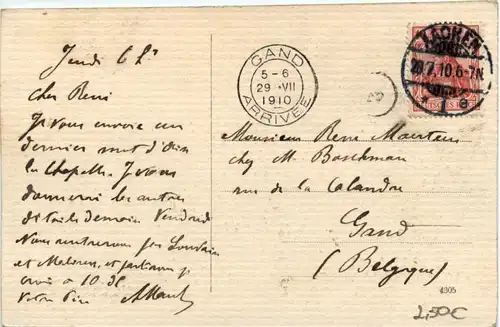 Jeudi 6 h
Cher René
Je vous envoie un
dernier mot d'Aix
la Chapelle. Je vous
donnerai les autres
détails demain Vendredi
Nous rentrerons par Louvain
et Malines, et partirons je
crois à 10.
Votre
GAND
5-6
29 VII
1910
ARRIVÉE
AACHEN
10.6-7N.
1 a
Monsieur René Maertens
chez M. Boschman
rue de la Calandre
Gand
(Belgique)
4305
2,50€